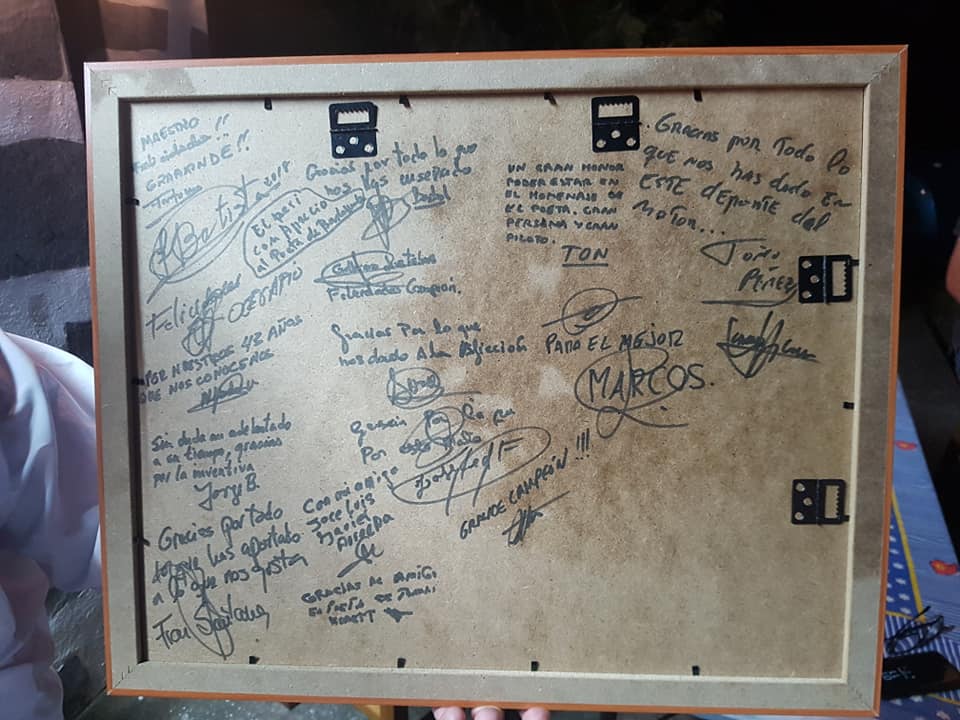 MAESTRO
GRAAANDE!!
Batista 2018
Gracias por todo lo que
nos has enseñado
El peri
con Aprecio
al Poeta de
UN GRAN HONOR
PODER ESTAR EN
EL HOMENAJE DE
EL POETA. GRAN
PERSONA Y GRAN
PILOTO.
TON
GRACIAS POR TODO LO
QUE NOS HAS DADO EN
ESTE DEPORTE DEL
MOTOR...
TOÑO
PÉREZ
Felicidades
Felicidades Campeón.
POR NUESTROS 43 AÑOS
QUE NOS CONOCEMOS
Gracias Por lo que
nos dado A La Afición
PARA EL MEJOR
MARCOS.
Sin duda un adelantado
a su tiempo, gracias
por la inventiva
Jorge B.
Gracias
Por
GRANDE CAMPEÓN!!!
Gracias por todo
lo que has aportado
a lo que nos gusta
Fran Santana
Con mi amigo
Jose Luis
Javier
GRACIAS DE AMIGO
EL POETA DE